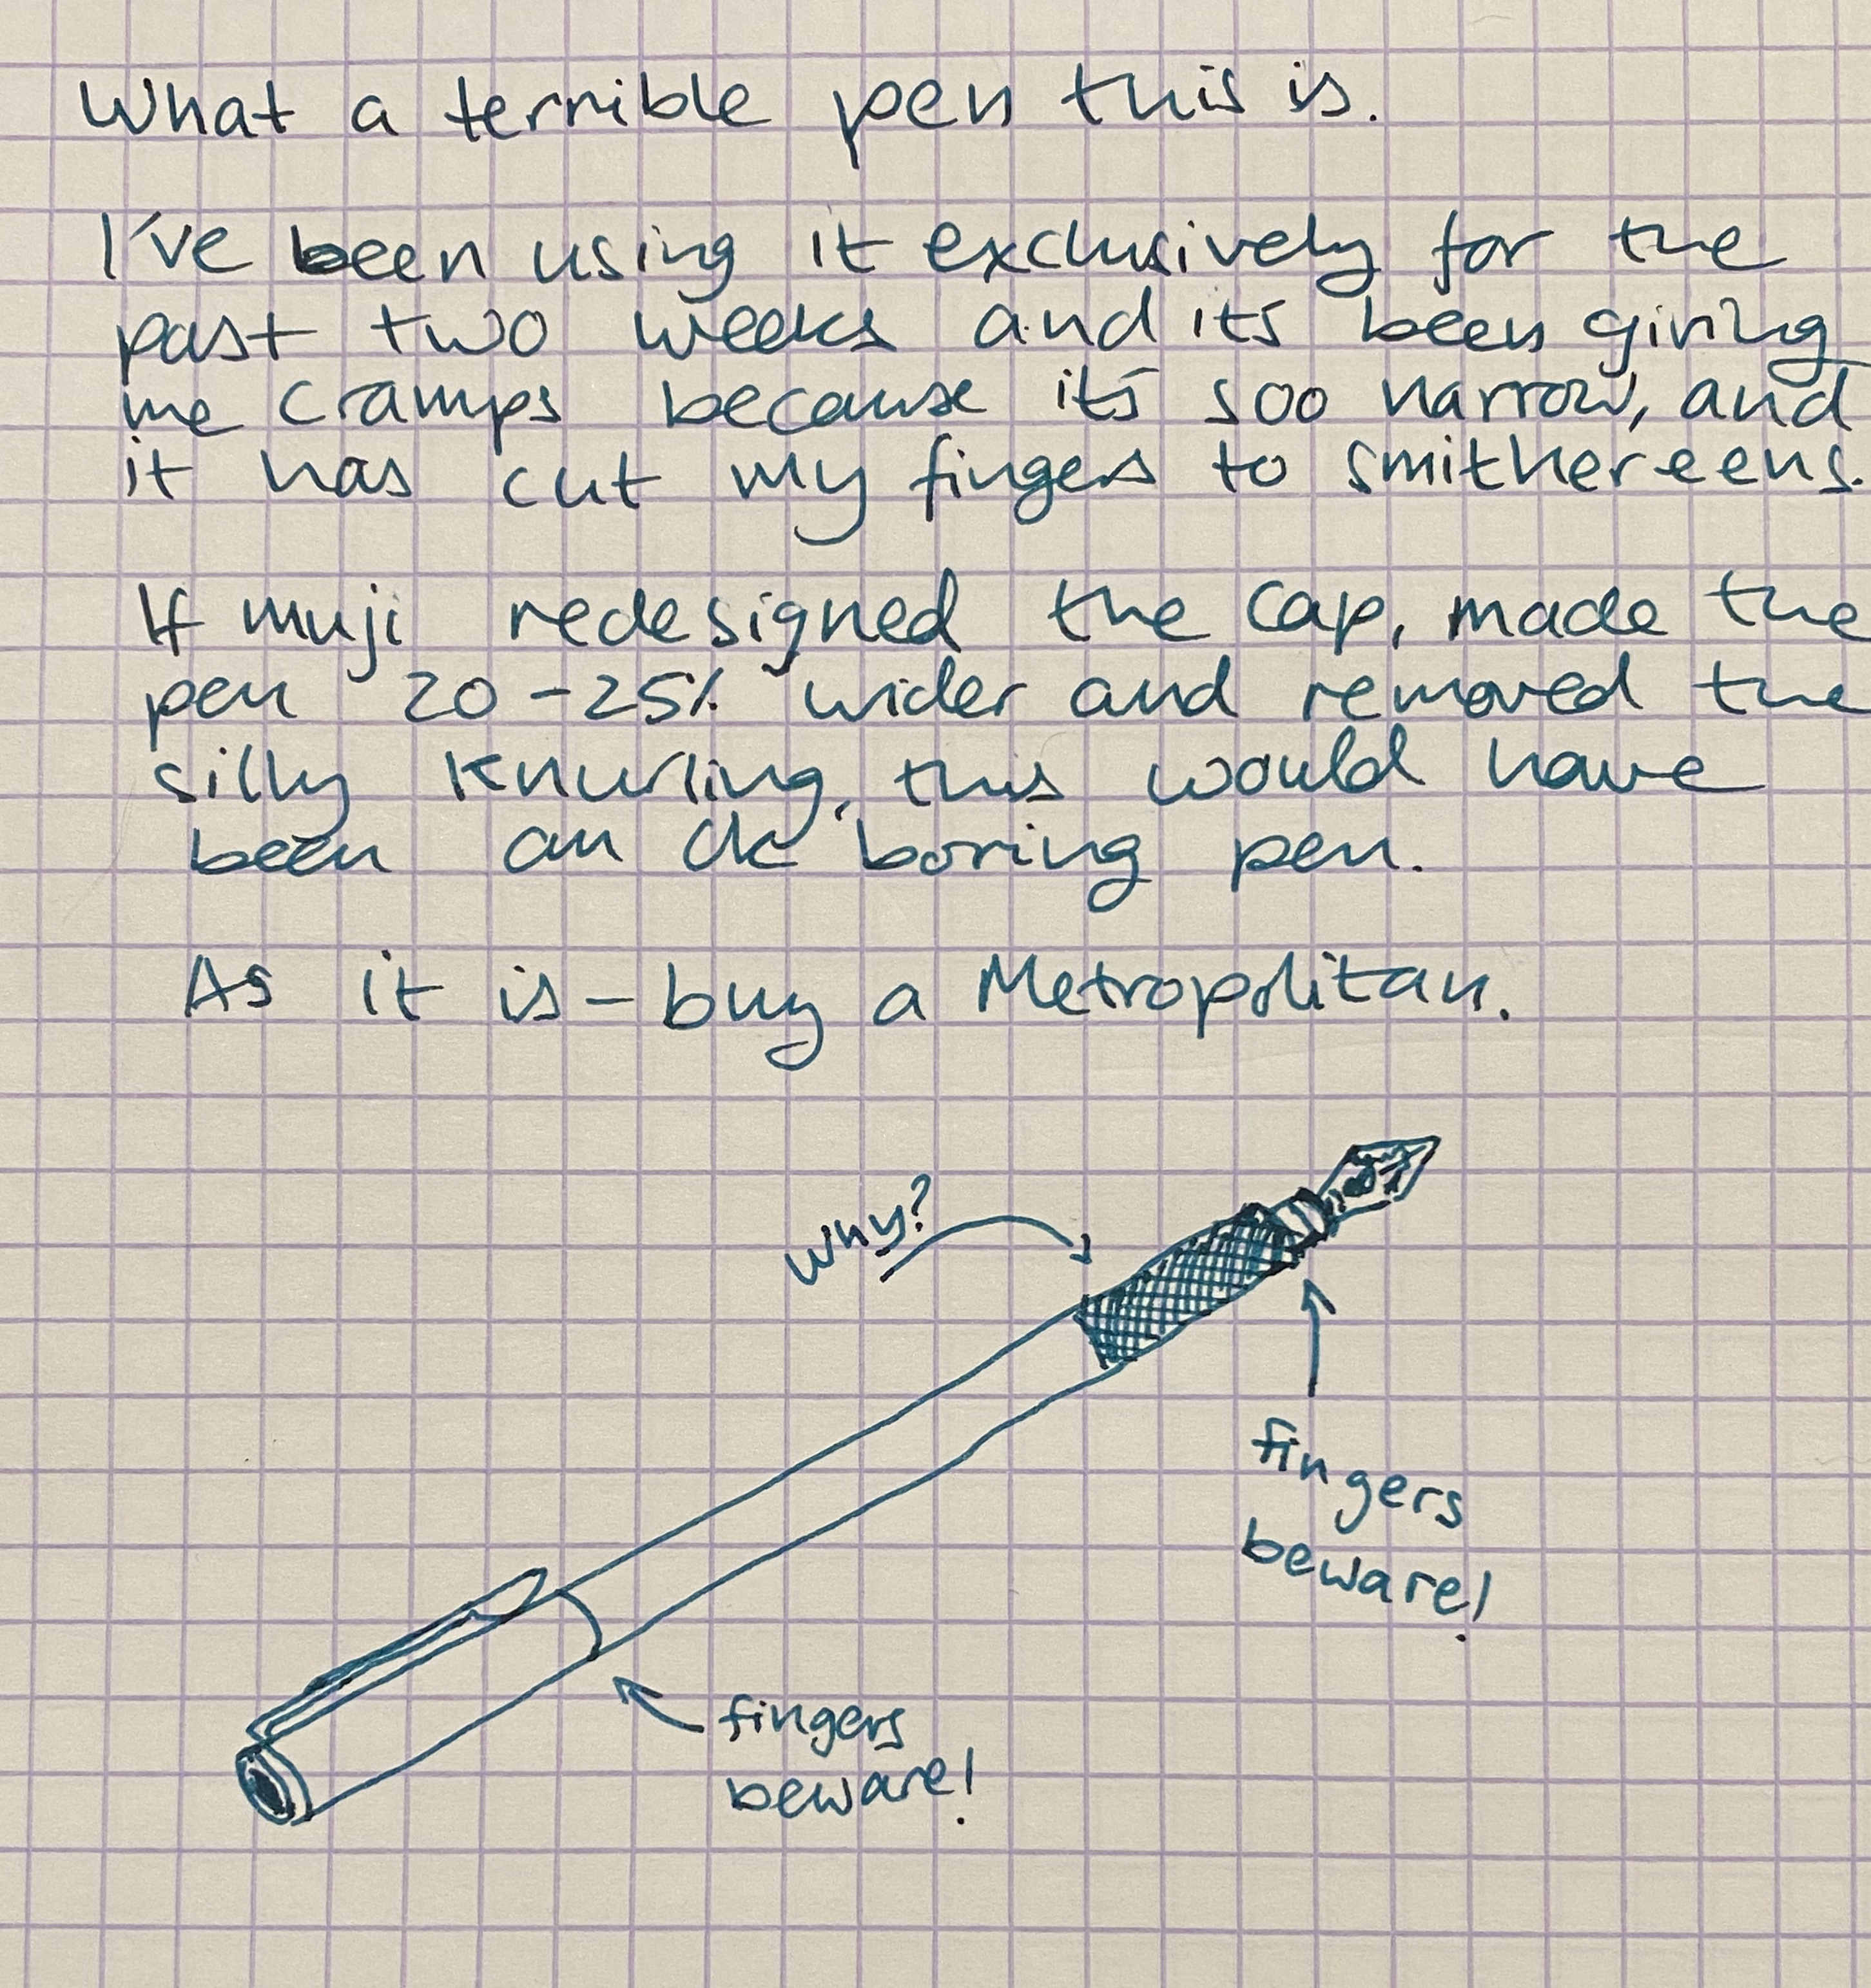 What a terrible pen this is.
I've been using it exclusively for the
past two weeks and it's been giving
me cramps because it's soo narrow, and
it has cut my fingers to smithereens.
If muji redesigned the cap, made the
pen 20-25% wider and removed the
silly knurling, this would have
been an ok boring pen.
As it is - buy a Metropolitan.
why?
fingers
beware!
fingers
beware!